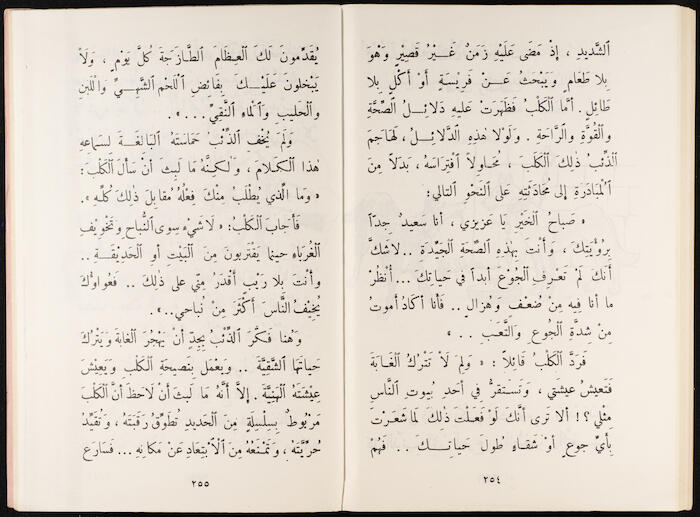 الشَّدِيدِ ، إِذْ مَضَى عَلَيْهِ زَمَنٌ غَيْرُ قَصِيْرٍ وَهُوَ
بِلا طَعَامٍ وَيَبْحَثُ عَنْ فَرِيْسَةٍ أَوْ أُكْلٍ بِلا
طَائِلٍ . أَمَّا الْكَلْبُ فَظَهَرَتْ عَلَيهِ دَلائِلُ الصِّحَّةِ
وَالْقُوَّةِ وَالرَّاحَةِ . وَلَوْلا هٰذِهِ الدَّلائِلُ ، لَهَاجَمَ
الذِّئْبُ ذٰلِكَ الْكَلْبَ ، مُحَاوِلاً افْتِرَاسَهُ ، بَدَلاً مِنَ
الْمُبَادَرَةِ إِلى مُحَادَثَتِهِ عَلَى النَّحْوِ التالي :
« صَبَاحُ الْخَيْرِ يَا عَزِيزي ، أنا سَعِيدٌ جِدّاً
بِرُؤْيَتِكَ ، وَأَنْتَ بِهٰذِهِ الصِّحَّةِ الْجَيِّدَةِ .. لا شَكَّ
أَنَّكَ لَمْ تَعْرِفِ الْجُوْعَ أَبداً في حَيَاتِكَ ... أُنْظُرْ
ما أنا فِيهِ مِنْ ضُعْفٍ وَهُزالٍ .. فَأَنا أَكَادُ أَمُوتُ
مِنْ شدَّةِ الْجُوعِ وَالتَّعَبِ .. »
فَرَدَّ الْكَلْبُ قَائِلاً : « وَلِمَ لاَ تَتْرُكُ الْغَابَةَ
فَتَعِيشُ عيشَتي ، وَتَسْتَقِرُّ في أَحَدِ بُيوتِ النَّاسِ
مِثْلي ؟! أَلا تَرى أَنَّكَ لَوْ فَعَلْتَ ذٰلِكَ لَمَا شَعَرْتَ
بِأَيِّ جوعٍ أوْ شقاءٍ طُولَ حَيَاتِكَ .. فَهُمْ
٢٥٤
يُقَدِّمُونَ لَكَ الْعِظَامَ الطَّازَجَةَ كُلَّ يَوْمٍ ، وَلاَ
يَبْخَلونَ عَلَيْكَ بِفَائِضِ اللَّحْمِ الشَّهِيِّ وَاللَّبَنِ
والْحَلِيبِ وَالْمَاءِ النَّقِيِّ ... » .
وَلَمْ يُخْفِ الذِّئْبُ حَمَاسَتَهُ الْبَالِغَةَ لِسَمَاعِهِ
هٰذا الْكَلامَ ، وَلٰكِنَّهُ مَا لَبِثَ أَنْ سَأَلَ الْكَلْبَ :
« وَمَا الَّذِي يُطْلَبُ مِنْكَ فِعْلُهُ مُقابِلَ ذٰلِكَ كُلِّهِ » .
فَأَجَابَ الْكَلْبُ : « لا شَيْءَ سِوى النُّباحِ وَتَخْوِيْفِ
الْغُرَباءِ حينما يَقْتَرِبونَ مِنَ الْبَيْتِ أوِ الْحَدِيْقَةِ ..
وأَنْتَ بِلا رَيْبٍ أَقْدَرُ مِنِّي عَلى ذٰلِكَ .. فَعُواؤُكَ
يُخِيْفُ النَّاسَ أَكْثَرَ مِنْ نُباحي .. » .
وَهُنا فَكَّرَ الذِّئْبُ بِجِدٍّ أَنْ يَهْجُرَ الْغابَةَ وَيَتْرُكَ
حَياتَها الشَّقِيَّةَ .. وَيَعْمَلَ بِنَصِيحَةِ الْكَلْبِ وَيَعِيْشَ
عِيْشَتَهُ الْهَنِيَّةَ . إِلاَّ أَنَّهُ مَا لَبِثَ أَنْ لاَحَظَ أَنَّ الْكَلْبَ
مَرْبُوطٌ بِسِلْسِلَةٍ مِنَ الْحَديدِ تُطَوِّقُ رَقَبَتَهُ ، وَتُقَيِّدُ
حُرِّيَّتَهُ ، وَتَمْنَعُهُ مِنَ الْاِبْتِعَادِ عَنْ مَكَانِهِ ... فَسَارَعَ
٢٥٥